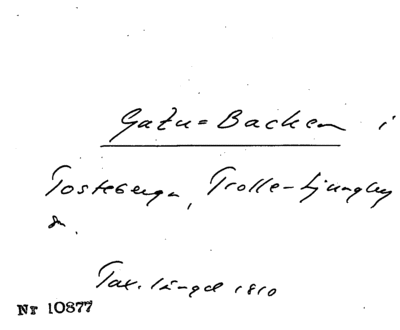 Gatu=Backen i
Tosteberga, Trolle-Ljungby
sn.
Tax. längd 1810
Nr 10877